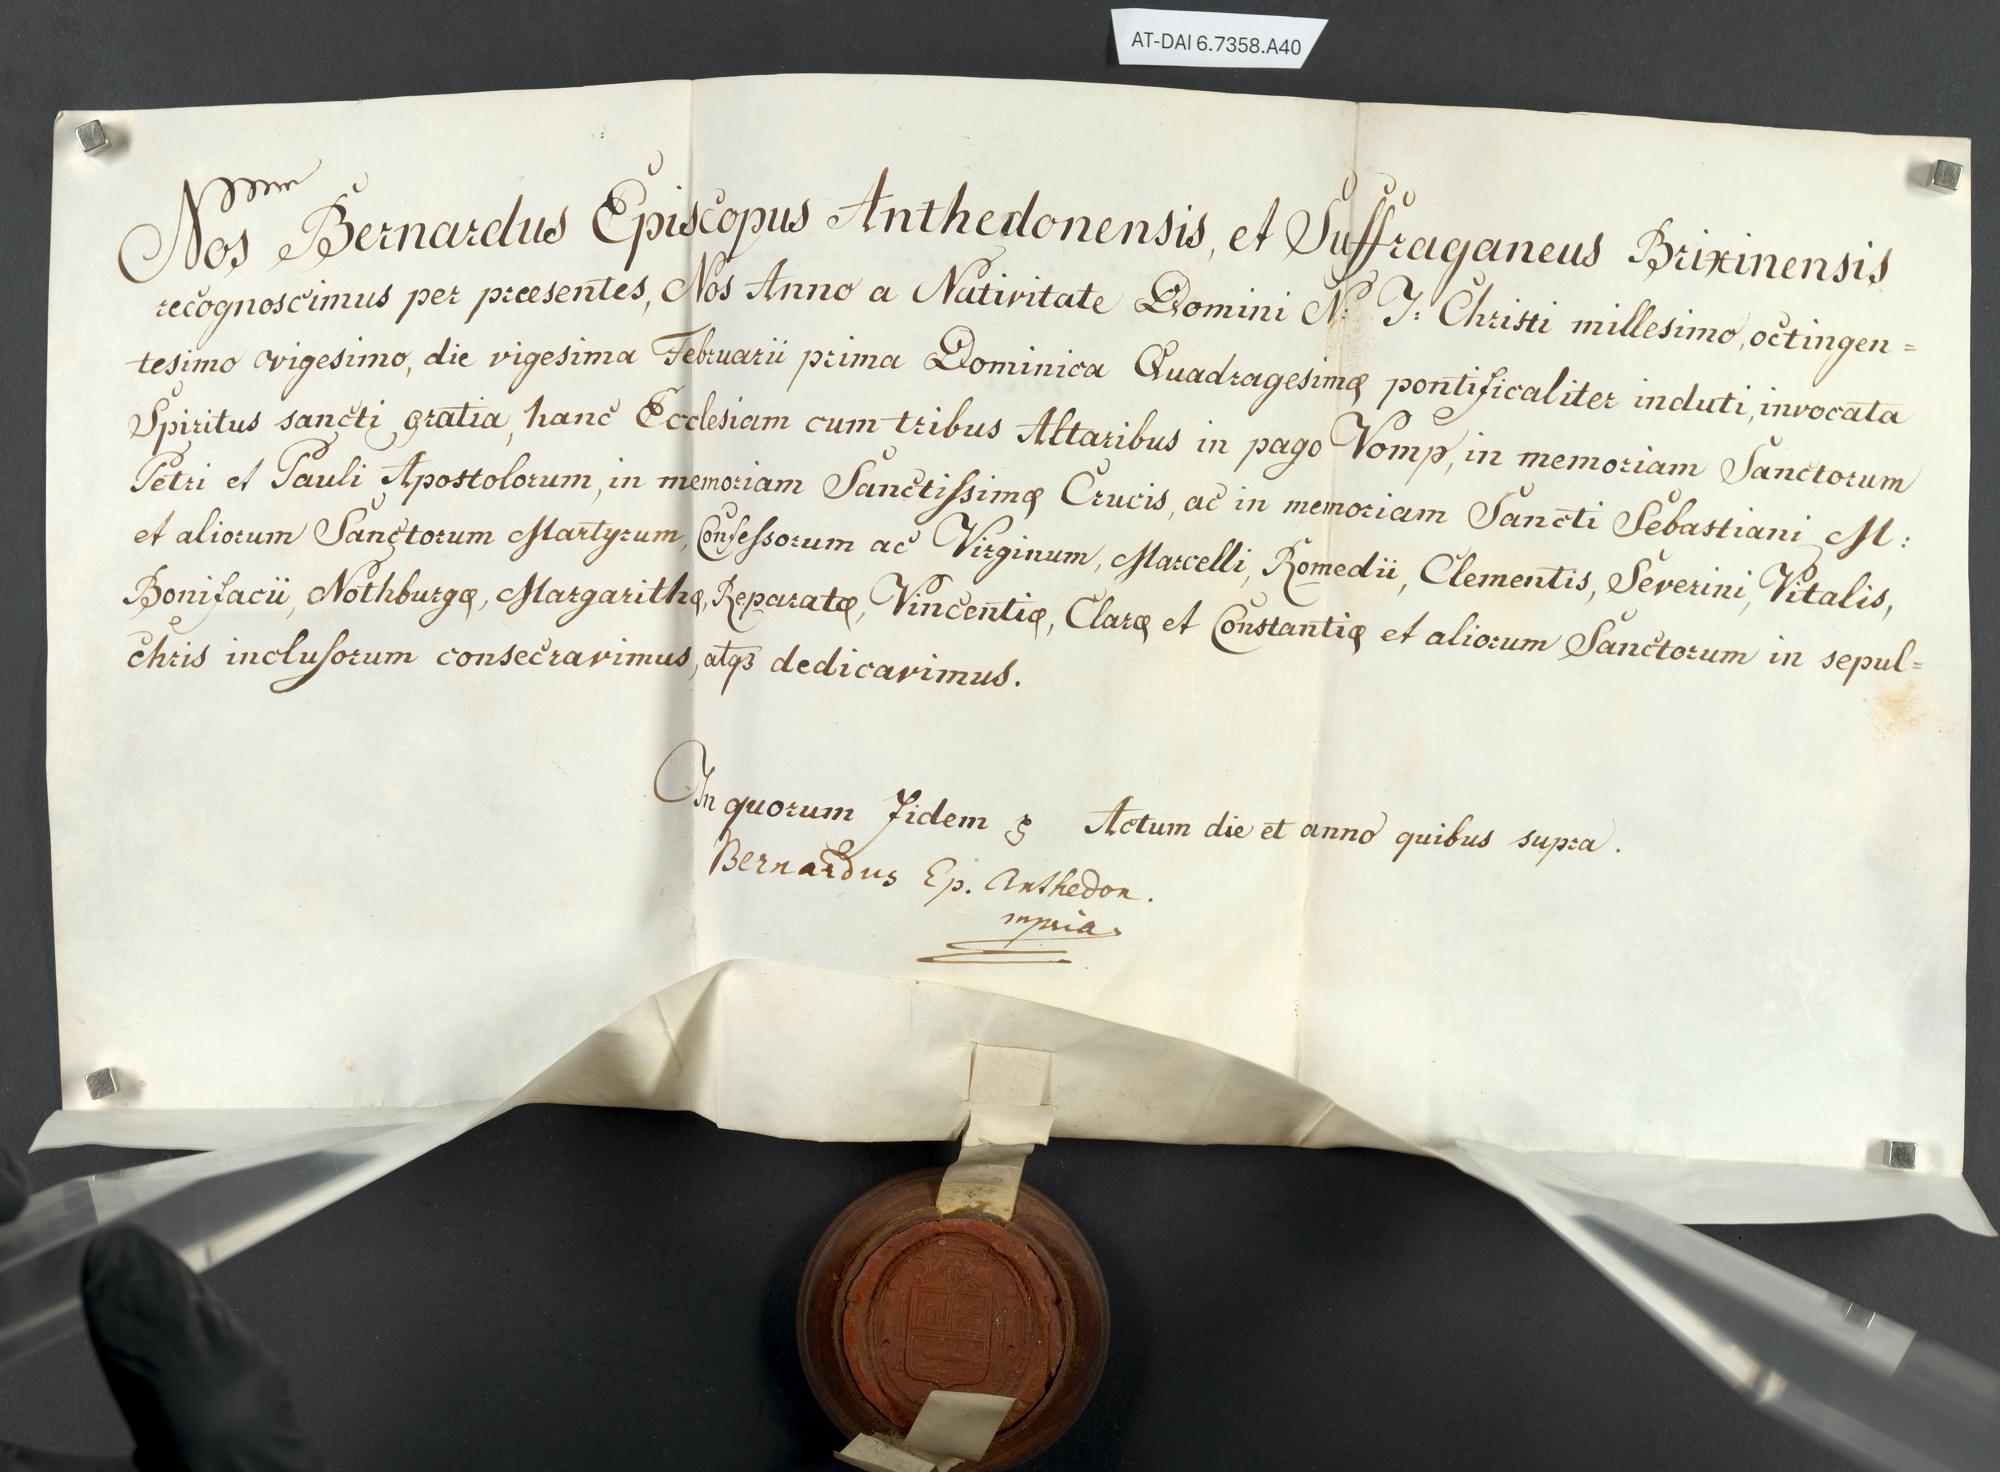 AT-DAI 6.7358.A40
Nos Bernardus Episcopus Anthedonensis, et Suffraganeus Brixinensis
recognoscimus per præsentes, Nos Anno a Nativitate Domini N: J: Christi millesimo, octingen=
tesimo vigesimo, die vigesima Februarii prima Dominica Quadragesimę pontificaliter induti, invocata
Spiritus sancti gratia, hanc Ecclesiam cum tribus Altaribus in pago Vomp, in memoriam Sanctorum
Petri et Pauli Apostolorum, in memoriam Sanctissimę Crucis, ac in memoriam Sancti Sebastiani M:
et aliorum Sanctorum Martyrum, Confessorum ac Virginum, Marcelli, Romedii, Clementis, Severini, Vitalis,
Bonifacii, Nothburgę, Margarithę, Reparatę, Vincentię, Clarę et Constantię et aliorum Sanctorum in sepul=
chris inclusorum consecravimus, atqꝫ dedicavimus.
In quorum Fidem Actum die et anno quibus supra.
Bernardus Ep. Anthedon.
mpria.